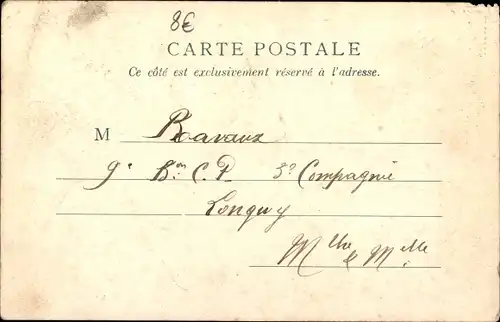 8€
CARTE POSTALE
Ce côté est exclusivement réservé à l'adresse.
M Ravaux
9e Bon C. P 3e Compagnie
Longwy
Mthe & Mlle